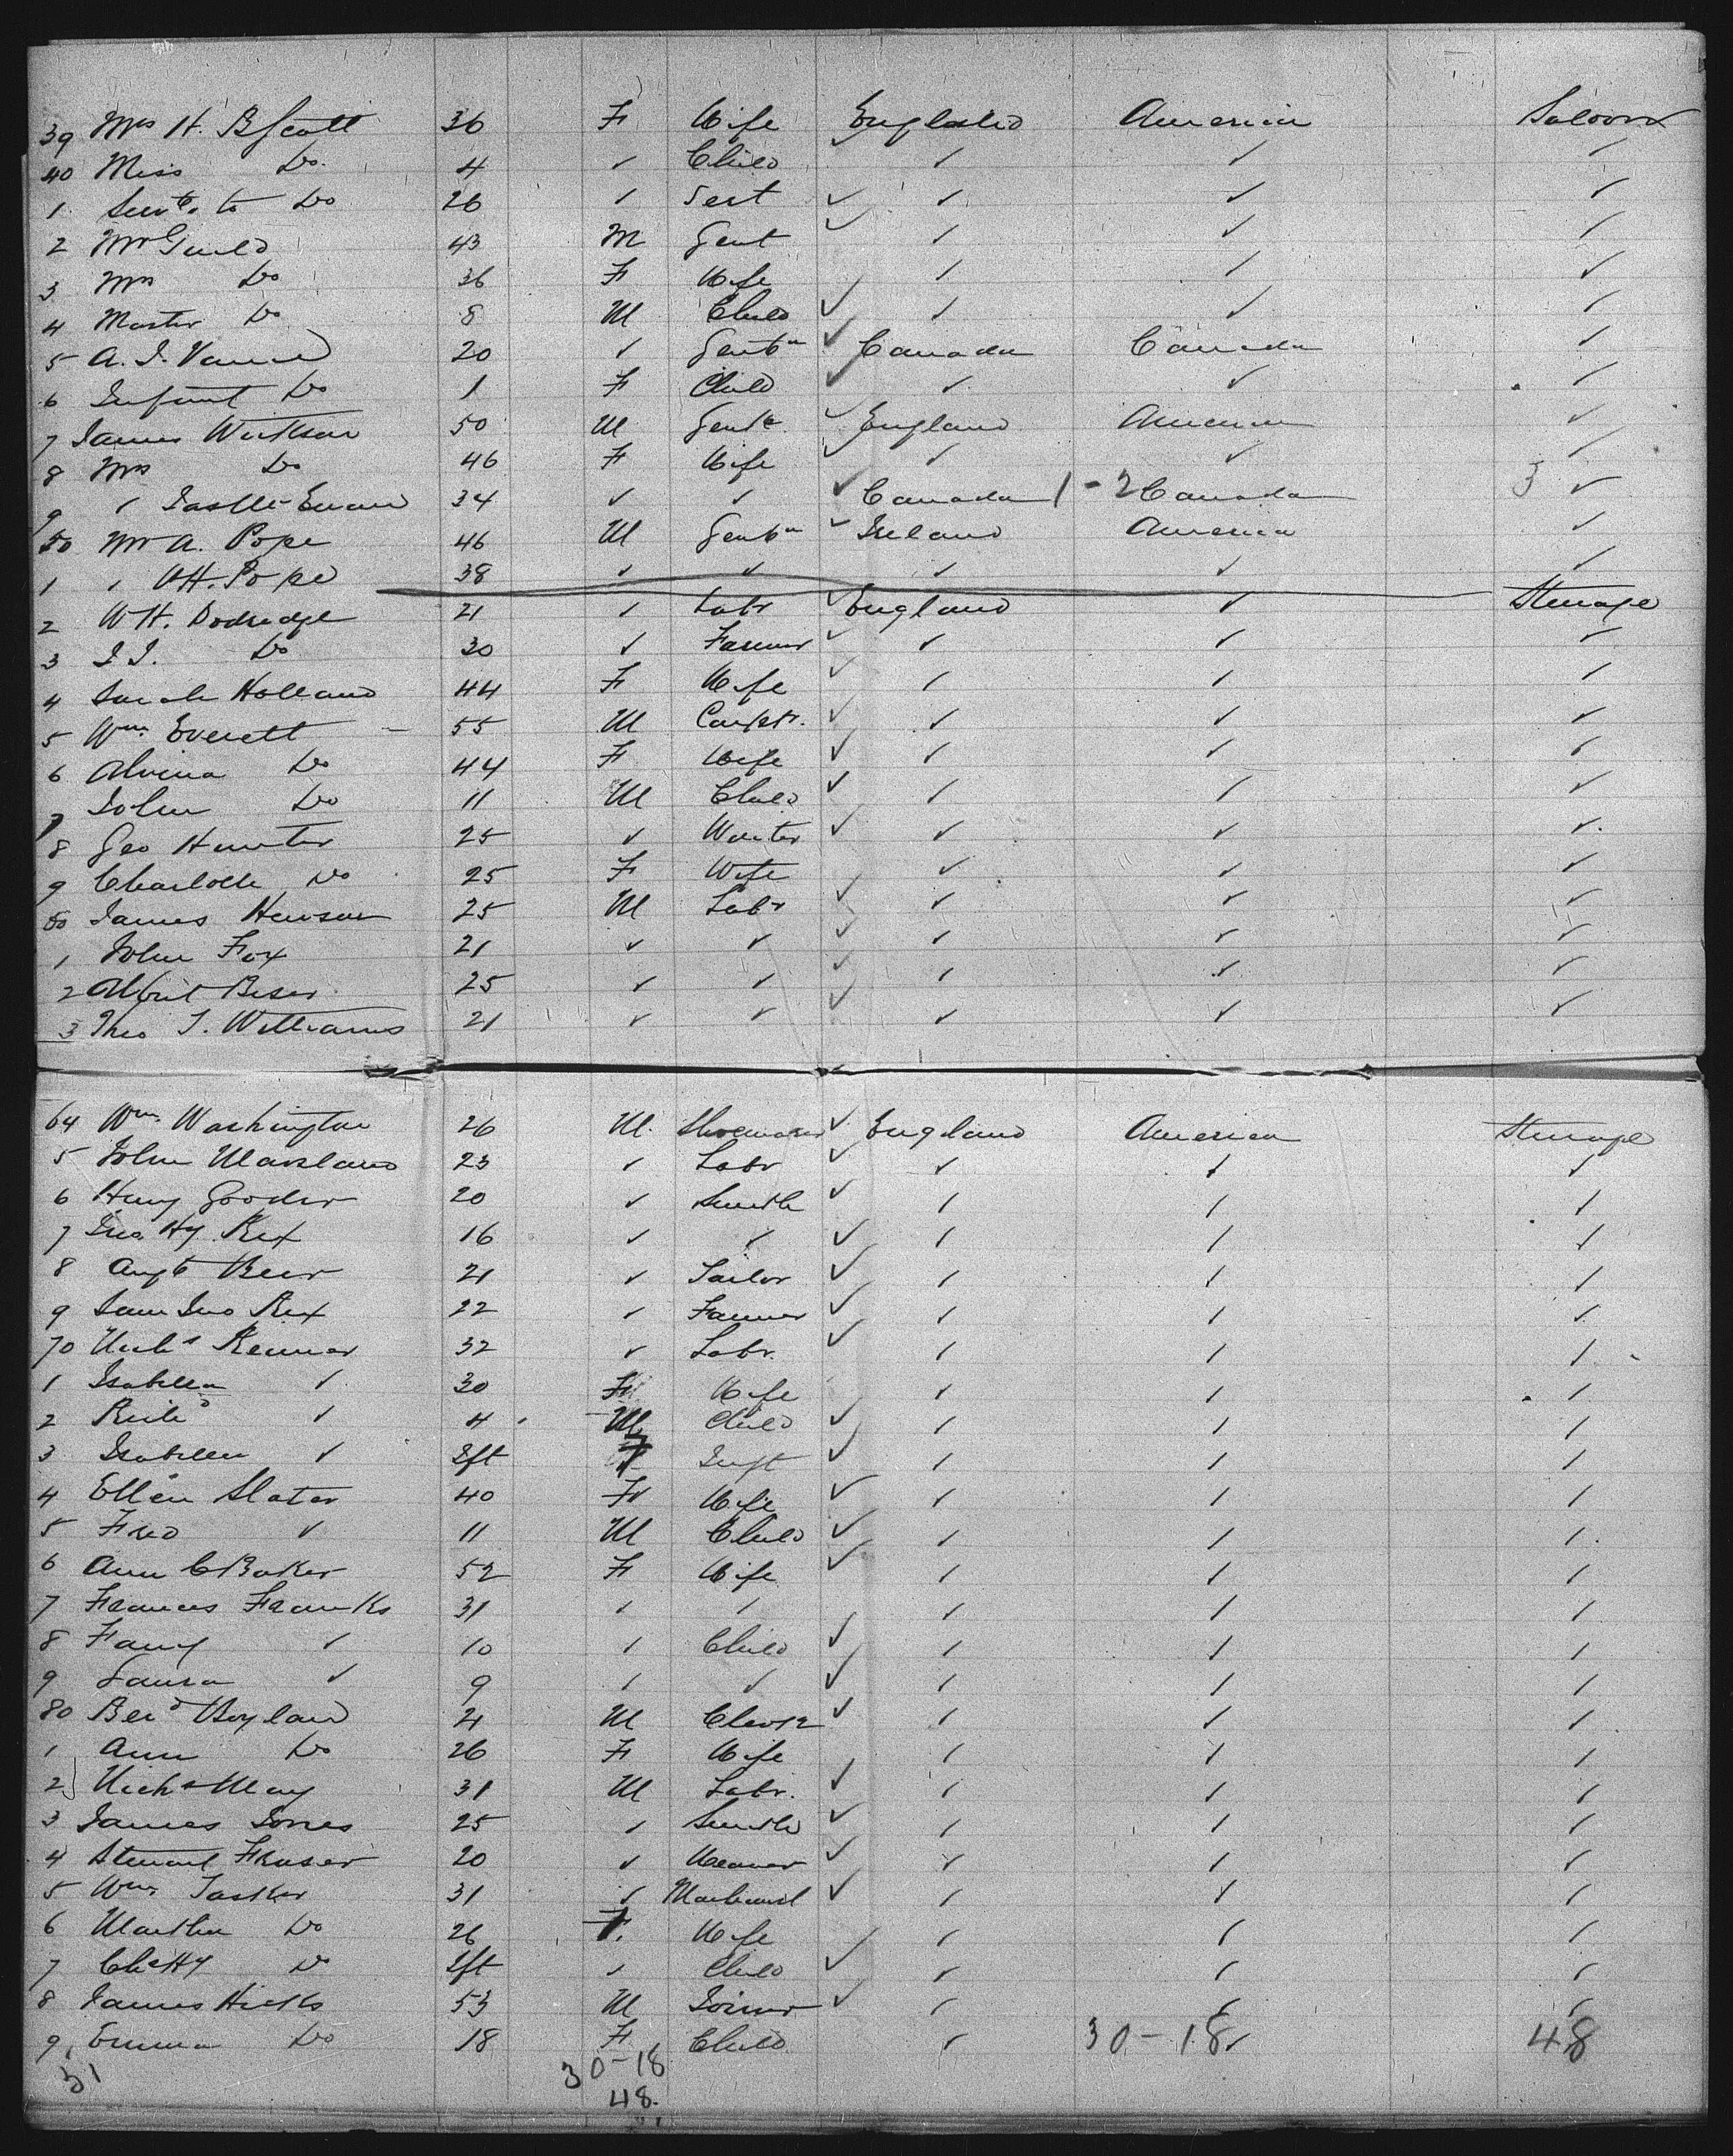 39 Mrs H. B Scott 36 F Wife England America Saloon
40 Miss Do. 4 ✓ Child ✓ ✓ ✓
1 Servt. to Do 26 ✓ Sert ✓ ✓ ✓ ✓
2 Mr Guild 43 M Gent ✓ ✓ ✓ ✓
3 Mrs Do 36 F Wife ✓ ✓ ✓
4 Master Do 8 M Child ✓ ✓ ✓ ✓
5 A. J. 20 ✓ Gentn ✓ Canada Canada ✓
6 Infant Do 1 F Child ✓ ✓ ✓ ✓
7 James 50 M Gent ✓ England America ✓
8 Mrs Do 46 F Wife ✓ ✓ ✓ ✓
9 ✓ 34 ✓ ✓ ✓ Canada 1 - 2 Canada 3 ✓
50 Mr A. Pope 46 M Gentn ✓ Ireland America ✓
1 ✓ Pope 38 ✓ ✓ ✓ ✓ ✓
2 W H. Dodredge 21 ✓ Labr ✓ England ✓ Steerage
3 J J. Do 30 ✓ Farmer ✓ ✓ ✓ ✓
4 Sarah Holland 44 F Wife ✓ ✓ ✓ ✓
5 Wm. Everett 55 M Carptr. ✓ ✓ ✓ ✓
6 Alvina Do 44 F Wife ✓ ✓ ✓ ✓
7 John Do 11 M Child ✓ ✓ ✓ ✓
8 Geo Hunter 25 ✓ Waiter ✓ ✓ ✓ ✓
9 Charlotte Do 25 F Wife ✓ ✓ ✓
60 James Hewson 25 M Labr ✓ ✓ ✓ ✓
1 John Fox 21 ✓ ✓ ✓ ✓ ✓ ✓
2 Albert 25 ✓ ✓ ✓ ✓ ✓ ✓
3 Thos J. Williams 21 ✓ ✓ ✓ ✓ ✓ ✓
64 Wm. Washington 26 M. Shoemaker ✓ England America Steerage
5 John Marsland 23 ✓ Labr ✓ ✓ ✓ ✓
6 Hury Gooder 20 ✓ Smith ✓ ✓ ✓ ✓
7 Jno. Hy. Rex 16 ✓ ✓ ✓ ✓ ✓ ✓
8 Augt Beer 21 ✓ Tailor ✓ ✓ ✓ ✓
9 Sam Jno Rex 22 ✓ Farmer ✓ ✓ ✓ ✓
70 Michs 32 ✓ Labr. ✓ ✓ ✓ ✓
1 Isabella ✓ 30 F Wife ✓ ✓ ✓
2 Richd ✓ 4 M Child ✓ ✓ ✓ ✓
3 Isabella ✓ Ift F Inft ✓ ✓ ✓ ✓
4 Ellen Slater 40 F Wife ✓ ✓ ✓ ✓
5 Fred ✓ 11 M Child ✓ ✓ ✓ ✓
6 Ann C Baker 52 F Wife ✓ ✓ ✓ ✓
7 Frances Franks 31 ✓ ✓ ✓ ✓ ✓
8 Fanny ✓ 10 ✓ Child ✓ ✓ ✓ ✓
9 Laura ✓ 9 ✓ ✓ ✓ ✓ ✓ ✓
80 Bend Boyland 21 M Clerk ✓ ✓ ✓ ✓
1 Ann Do 26 F Wife ✓ ✓ ✓
2 Michs May 31 M Labr. ✓ ✓ ✓ ✓
3 James Jones 25 ✓ Smith ✓ ✓ ✓ ✓
4 Stewart Fraser 20 ✓ Weaver ✓ ✓ ✓ ✓
5 Wm. Tasker 31 ✓ Mechanic ✓ ✓ ✓ ✓
6 Martha Do 26 F. Wife ✓ ✓ ✓
7 Chs Hy Do Ift ✓ Child ✓ ✓ ✓ ✓
8 James Hicks 53 M Joiner ✓ ✓ ✓ ✓
9 Emma Do 18 F Child ✓ 30-18 ✓ 48
51 30-18
48.